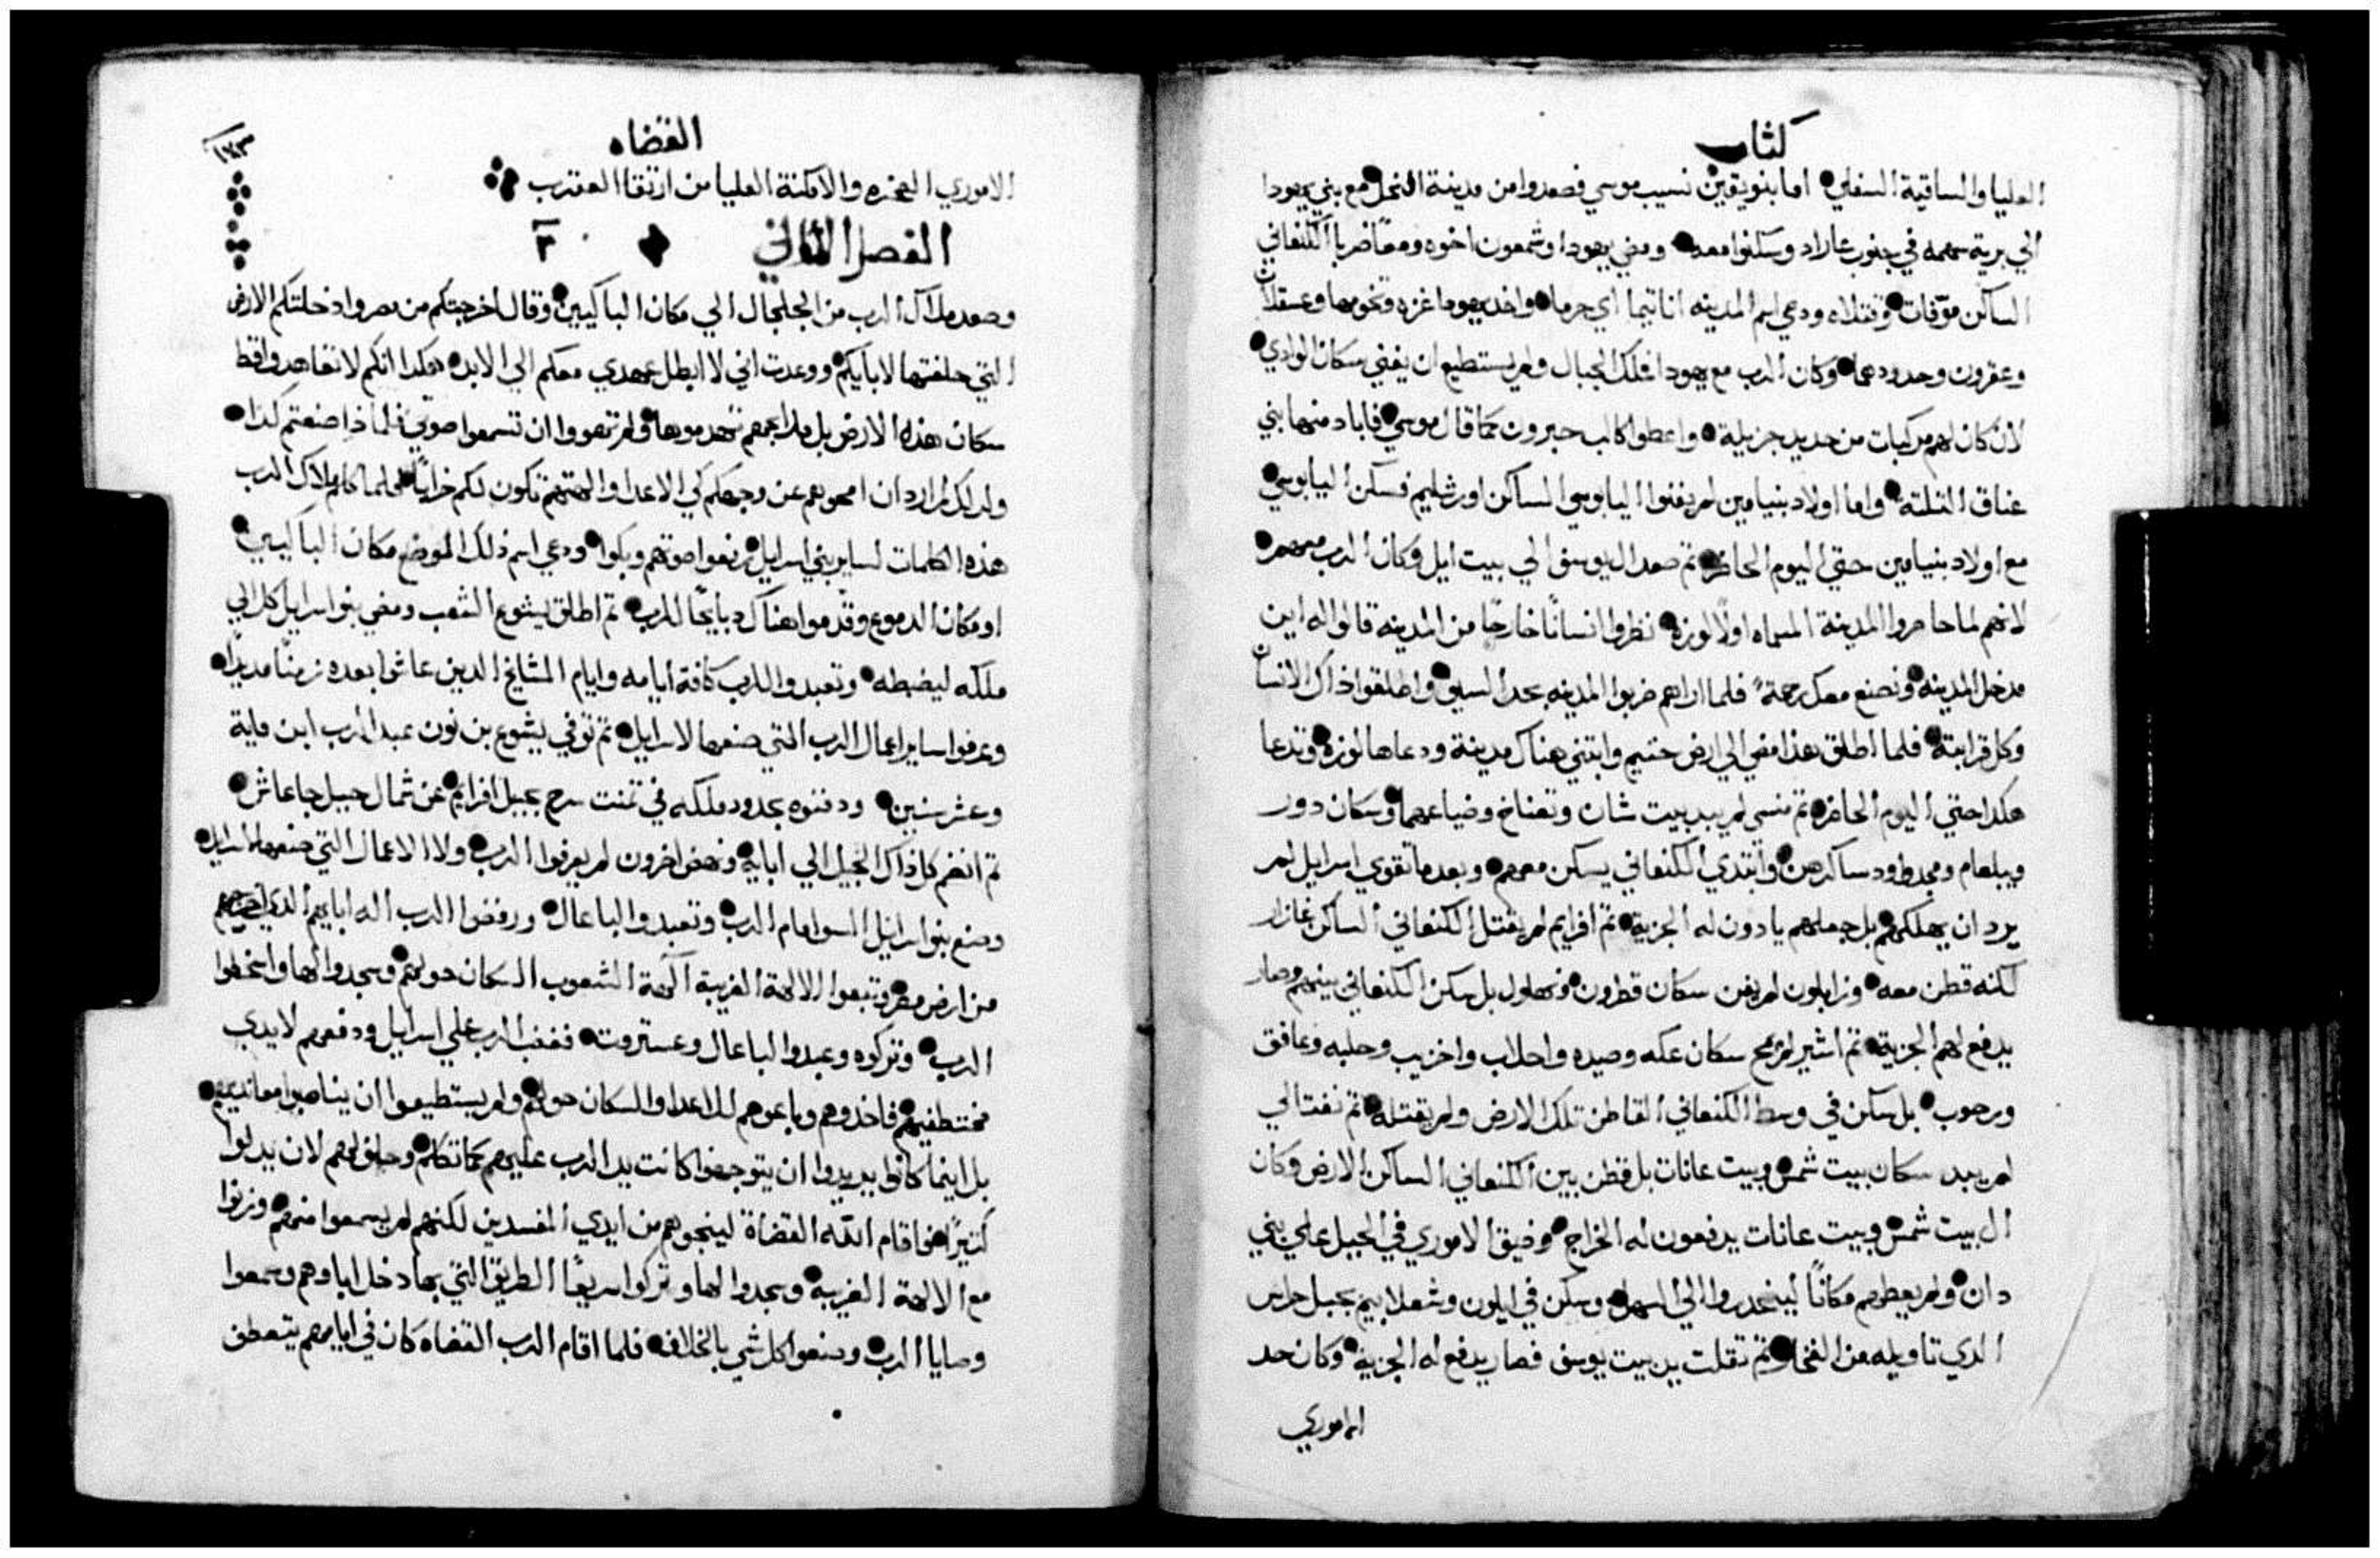 كتاب
العليا والساقية السفلي اما بنو يقين نسيب موسي فصعدوا من مدينة النخل مع بني يهودا
الي برية سهمه في جنوب عاراد وسكنوا معه ومضي يهودا وشمعون اخوه ومعًا ضربا الكنعاني
الساكن صوفات وقتلاه ودعي اسم المدينه اناتيما اي حرما واخد يهودا غزه وتخومها وعسقلان
وعقرون وحدودها وكان الرب مع يهودا فملك الجبال ولم يستطيع ان يفني سكان الوادي
لان كان لهم مركبات من حديد جزيلة واعطوا كالب حبرون كما قال موسي فاباد منها بني
عناق التلتة واما اولاد بنيامين لم يفنوا اليابوسي الساكن اورشليم فسكن اليابوسي
مع اولاد بنيامين حتي اليوم الحاضر تم صعد ال يوسف الي بيت ايل وكان الرب معهم
لانهم لما حاصروا المدينة المسماه اولًا لوزه نظروا انسانًا خارجًا من المدينه قالوا له اين
مدخل المدينه ونصنع معك رحمة فلما اراهم ضربوا المدينه بحد السيف واطلقوا ذاك الانسان
وكل قرابته فلما اطلق هذا مضي الي ارض حتيم وابتني هناك مدينة ودعاها لوزه وتدعا
هكدا حتي اليوم الحاضر تم منسي لم يبد بيت شان وتعناخ وضياعهما وسكان دور
ويبلعام ومجدوا ودساكرهن وابتدي الكنعاني يسكن معهم وبعد ما تقوي اسرايل لم
يرد ان يهلكهم بل جعلهم يادون له الجزية تم افرايم لم يقتل الكنعاني الساكن غازار
لكنه قطن معه وزابلون لم يفن سكان قطرون ونهلول بل سكن الكنعاني بينهم وصار
يدفع لهم الجزية تم اشير لم يمح سكان عكه وصيده واحلاب واخزيب وحلبه وعافق
ورحوب بل سكن في وسط الكنعاني القاطن تلك الارض ولم يقتله تم نفتالي
لم يبد سكان بيت شمس وبيت عانات بل قطن بين الكنعاني الساكن الارض وكان
ال بيت شمس وبيت عانات يدفعون له الخراج وضيق الاموري في الجبل علي بني
دان ولم يعطهم مكانًا لينحدروا الي السهل وسكن في ايلون وشعلابيم بجبل حارس
الدي تاويله من الفخار تم تقلت يد بيت يوسف فصار يدفع له الجزية وكان حد
الاموري
القضاه
١٧٣
الاموري الصخره والامكنة العليا من ارتقا العقرب
الفصل الثاني ٢
وصعد ملاك الرب من الجلجال الي مكان الباكيين وقال اخرجتكم من مصر وادخلتكم الارض
التي حلفتها لابايكم ووعدت اني لا ابطل عهدي معكم الي الابد هكدا انكم لا تعاهدوا قط
سكان هذه الارض بل مدابحهم تهدموها ولم تهووا ان تسمعوا صوتي فلماذا صنعتم كدا
ولدلك لم ارد ان امحوهم عن وجهكم كي الاعدا والهتهم تكون لكم خرابًا فلما كلم ملاك الرب
هذه الكلمات لساير بني اسرايل رفعوا صوتهم وبكوا ودعي اسم ذلك الموضع مكان الباكيين
او مكان الدموع وقدموا هناك دبايحًا للرب تم اطلق يشوع الشعب ومضي بنو اسرايل كل الي
ملكه ليضبطه وتعبدوا للرب كافة ايامه وايام المشايخ الدين عاشوا بعده زمنًا مديدًا
وعرفوا ساير اعمال الرب التي صنعها لاسرايل تم توفي يشوع بن نون عبد الرب ابن ماية
وعشر سنين ودفنوه بحدود ملكه في تمنت سرح بجبل افرايم عن شمال جبل جاعاش
تم انضم كل ذاك الجيل الي ابايه ونهض اخرون لم يعرفوا الرب ولا الاعمال التي صنعها لاسرايل
وصنع بنو اسرايل السو امام الرب وتعبدوا الباعال ورفضوا الرب اله ابايهم الدي اخرجهم
من ارض مصر وتبعوا الالهة الغريبة آلهة الشعوب السكان حولهم وسجدوا لها واسخطوا
الرب وتركوه وعبدوا الباعال وعستروت فغضب الرب علي اسرايل ودفعهم لايدي
مختطفيهم فاخدوهم وباعوهم للاعدا والسكان حولهم ولم يستطيعوا ان يناصبوا معانديهم
بل اينما كانوا يريدوا ان يتوجهوا كانت يد الرب عليهم كما تكلم وحلف لهم لان يدلوا
كتيرًا هو اقام الله القضاة لينجوهم من ايدي المفسدين لكنهم لم يسمعوا منهم وزنوا
مع الالهة الغريبة وسجدوا لها وتركوا سريعًا الطريق التي بها دخل اباوهم وسمعوا
وصايا الرب وصنعوا كل شي بالخلاف فلما اقام الرب القضاه كان في ايامهم يتعطف